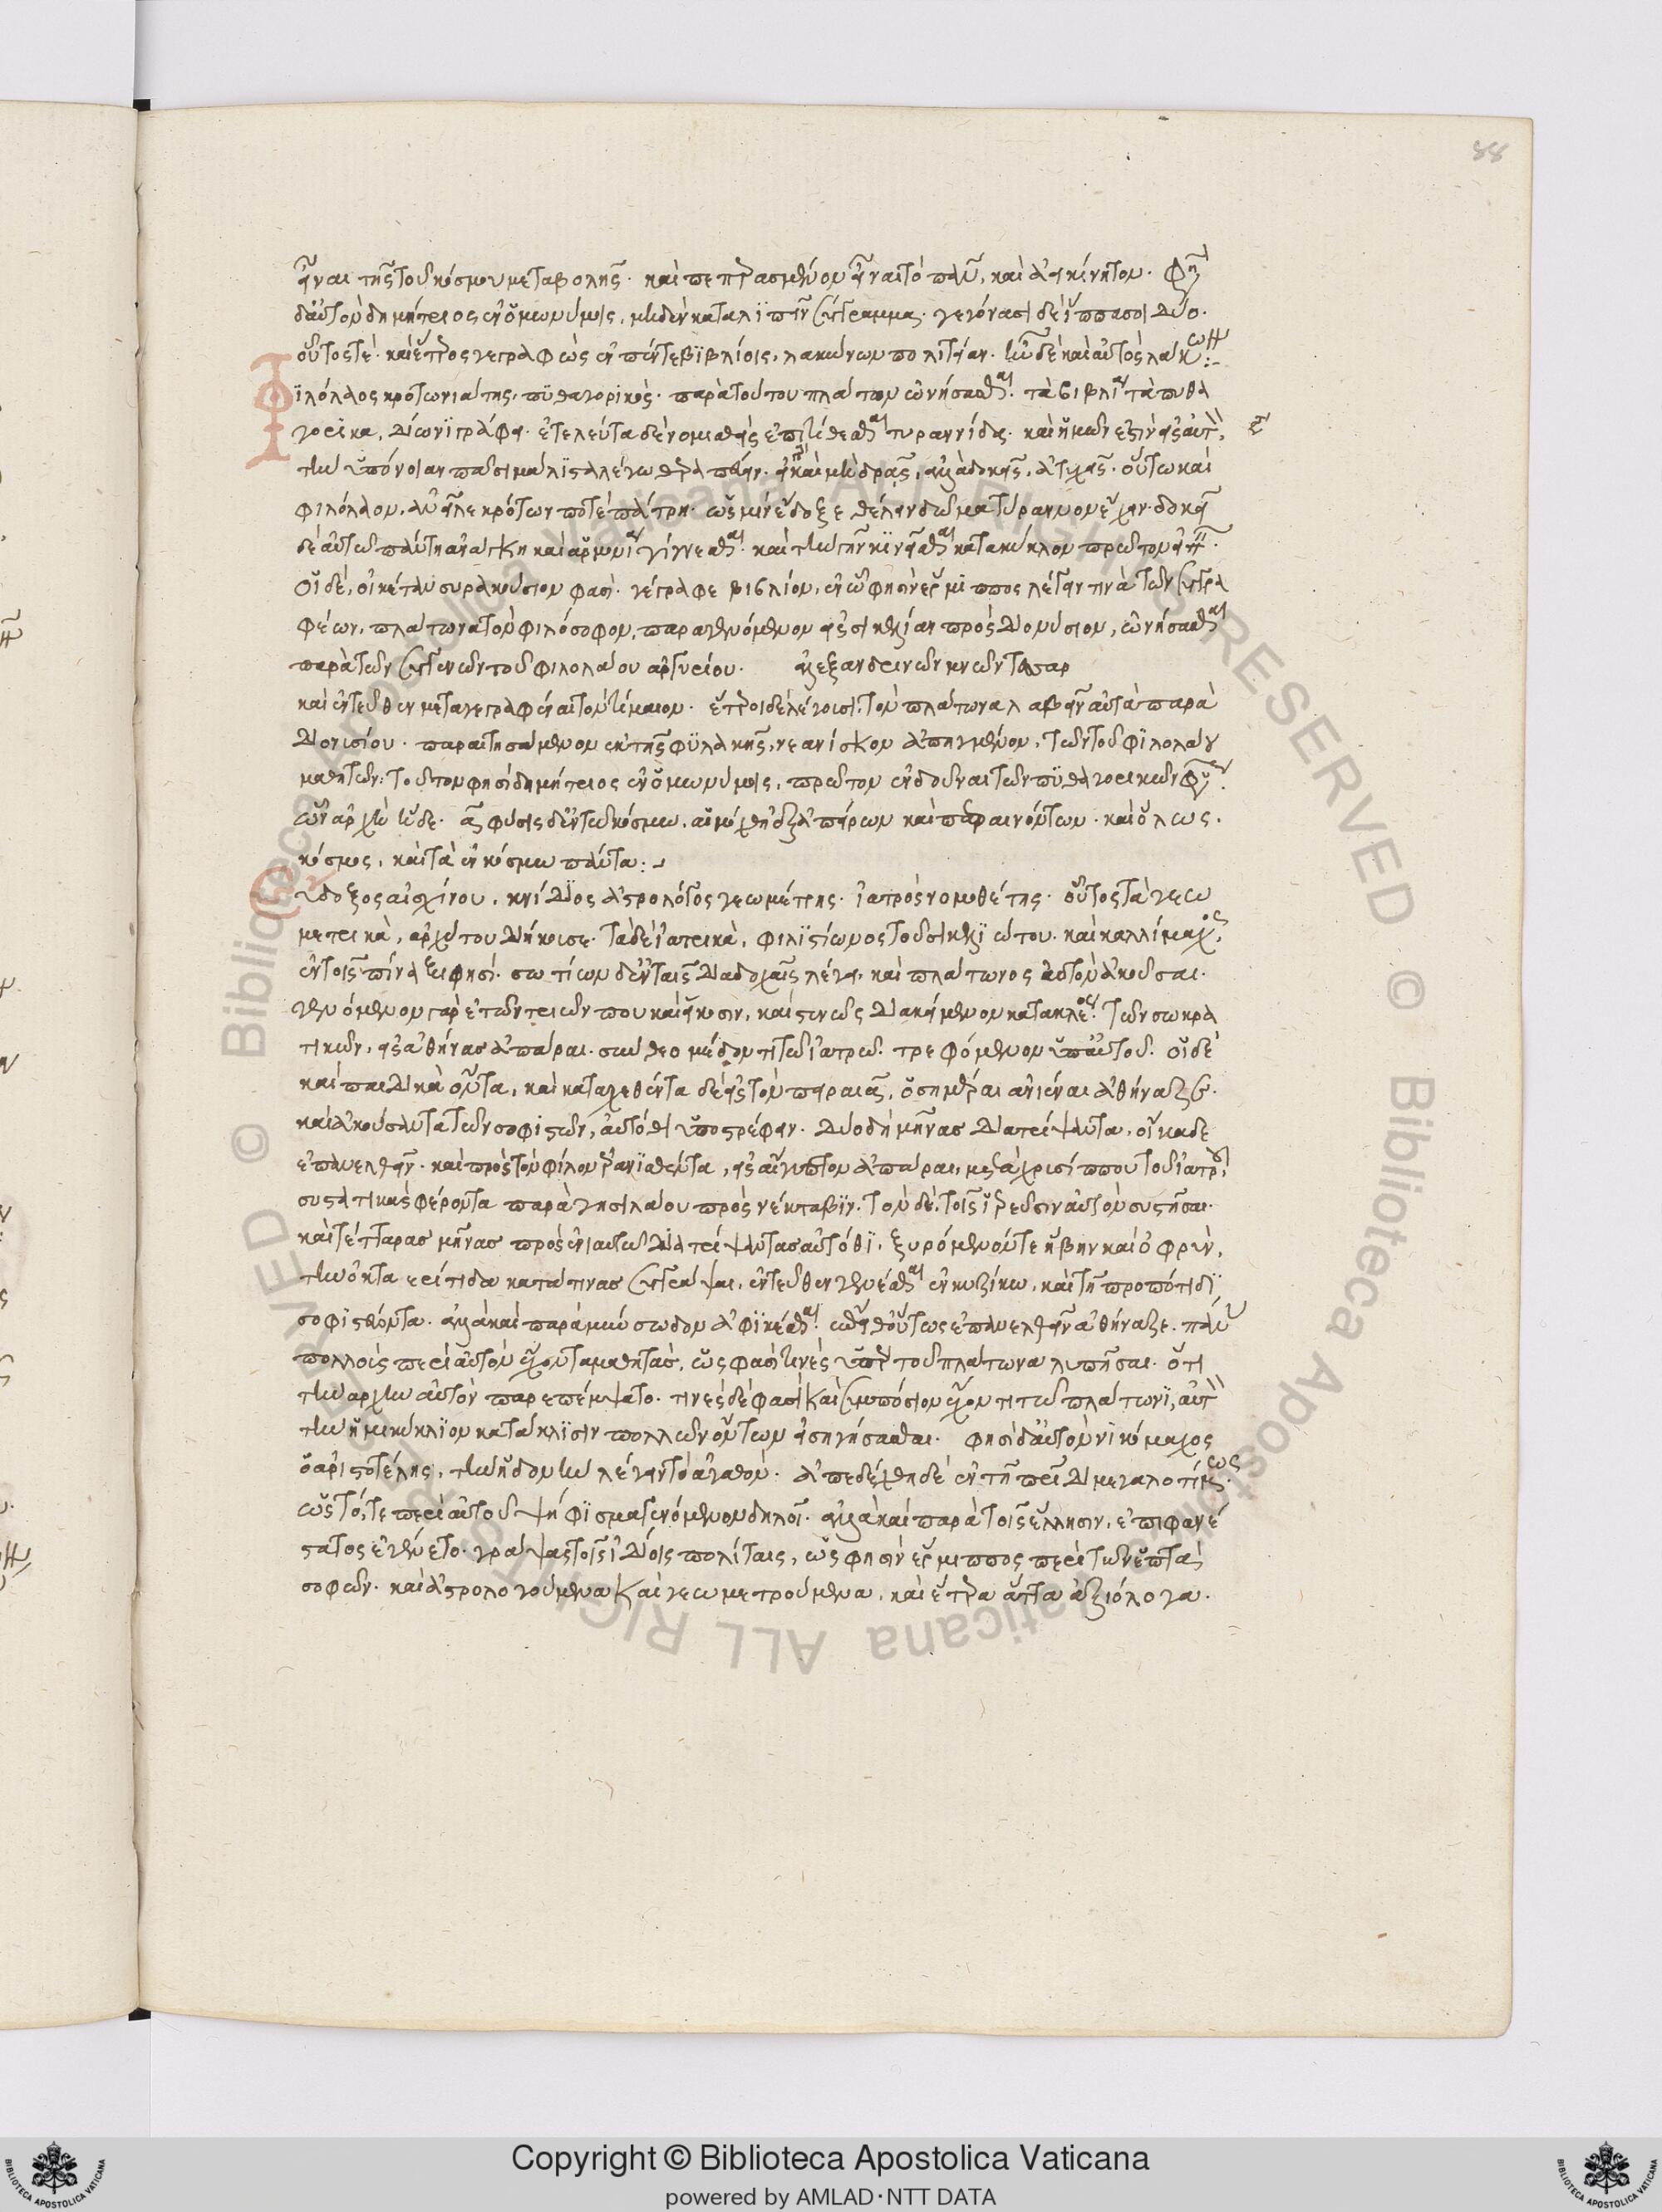 88
εἶναι τῆς τοῦ κόσμου μεταβολῆς. καὶ πεπερασμένον εἶναι τὸ πᾶν, καὶ ἀεικίνητον. φησὶ
δ' αὐτὸν δημήτριος ἐν ὁμωνύμοις, μηδὲν καταλιπεῖν σύγγραμμα. γεγόνασι δὲ ἵππασοι δύο.
οὗτός τε. καὶ ἕτερος γεγραφὼς ἐν πέντε βιβλίοις, λακώνων πολιτείαν. ἦν δὲ καὶ αὐτὸς λάκων:-
Φιλόλαος κροτωνιάτης, πυθαγορικὸς. παρὰ τούτου πλάτων ὠνήσασθαι τὰ βιβλία τὰ πυθα
γορικὰ, δίωνι γράφει. ἐτελεύτα δὲ νομισθεὶς ἐπιτίθεσθαι τυραννίδι. καὶ ἡμῶν ἐστὶν εἰς αὐτὸν,
τὴν ὑπόνοιαν πᾶσι μάλιστα λέγω θεραπεύειν. εἰ γὰρ καὶ μὴ δρᾷς, ἀλλὰ δοκεῖς, ἀτυχεῖς. οὕτω καὶ
φιλόλαον, ἀνεῖλε κρότων ποτὲ πάτρη. ὥς μιν ἔδοξε θέλειν δῶμα τύραννον ἔχειν. δοκεῖ
δὲ αὐτῷ πάντα ἀνάγκη καὶ ἁρμονία γίγνεσθαι. καὶ τὴν γῆν κινεῖσθαι κατὰ κύκλον πρῶτον εἰπεῖν.
Οἱ δὲ, οἰκέταν συρακούσιον φασὶ. γέγραφε βιβλίον, ἐν ᾧ φησὶν ἕρμιππος λέγειν τινὰ τῶν συγγρα
φέων, πλάτωνα τὸν φιλόσοφον, παραγενόμενον εἰς σικελίαν πρὸς διονύσιον, ὠνήσασθαι
παρὰ τῶν συγγενῶν τοῦ φιλολάου ἀργυρίου. ἀλεξανδρινῶν μνῶν τεσσαρ
καὶ ἐντεῦθεν μεταγεγραφέναι τὸν τίμαιον. ἕτεροι δὲ λέγουσι. τὸν πλάτωνα λαβεῖν αὐτὰ παρὰ
διονυσίου. παραιτησάμενον ἐκ τῆς φυλακῆς, νεανίσκον ἀπηγμένον, τῶν τοῦ φιλολάου
μαθητῶν: τοῦτον φησὶ δημήτριος ἐν ὁμωνύμοις, πρῶτον ἐκδοῦναι τῶν πυθαγορικῶν φύσεως.
ὧν ἀρχὴ ἥδε. ἁ φύσις δ' ἐν τῷ κόσμῳ, ἁρμόχθη ἐξ ἀπείρων καὶ περαινόντων. καὶ ὅλως,
κόσμος, καὶ τὰ ἐν κόσμῳ πάντα:
Εὔδοξος αἰσχίνου, κνίδιος ἀστρολόγος γεωμέτρης. ἰατρὸς νομοθέτης. οὗτος τὰ γεω
μετρικὰ, ἀρχύτου διήκουσε. τὰ δὲ ἰατρικὰ, φιλιστίωνος τοῦ σικελιώτου. καὶ καλλίμαχος,
ἐν τοῖς πίναξι φησί. σωτίων δ' ἐν ταῖς διαδοχαῖς λέγει, καὶ πλάτωνος αὐτὸν ἀκοῦσαι.
γενόμενον γὰρ ἐτῶν τριῶν που καὶ εἴκοσιν, καὶ στενῶς διακείμενον κατὰ κλέος τῶν σωκρα
τικῶν, εἰς ἀθήνας ἀπᾶραι. σὺν θεομέδοντι τῷ ἰατρῷ. τρεφόμενον ὑπ' αὐτοῦ. οἱ δὲ
καὶ παιδικὰ ὄντα, καὶ καταχθέντα δὲ εἰς τὸν πειραιᾶ, ὁσημέραι ἀνιέναι ἀθήναζε.
καὶ ἀκούσαντα τῶν σοφιστῶν, αὐτόθι ὑποστρέφειν. δύο δὴ μῆνας διατρίψαντα, οἴκαδε
ἐπανελθεῖν. καὶ πρὸς τῶν φίλων ἐρανισθέντα, εἰς αἴγυπτον ἀπᾶραι, μετὰ χρισίππου τοῦ ἰατροῦ,
συστατικὰς φέροντα παρὰ γησιλάου πρὸς νέκταβιν. τὸν δὲ, τοῖς ἱερεῦσιν αὐτὸν συστῆσαι.
καὶ τέτταρας μῆνας πρὸς ἐνιαυτῷ διατρίψαντα αὐτόθι, ξυρόμενόν τε ἥβην καὶ ὀφρὺν,
τὴν ὀκταετηρίδα κατά τινας συγγράψαι, ἐντεῦθεν γενέσθαι ἐν κυζίκῳ, καὶ τῇ προποντίδι,
σοφιστεύοντα. ἀλλὰ καὶ παρὰ μαύσωλον ἀφικέσθαι. ἔπειθ' οὕτως ἐπανελθεῖν ἀθήναζε. πάνυ
πολλοὺς περὶ αὐτὸν ἔχοντα μαθητὰς, ὥς φασί τινες ὑπὲρ τοῦ πλάτωνα λυπῆσαι. ὅτι
τὴν ἀρχὴν αὐτὸν παρεπέμψατο. τινὲς δέ φασι καὶ συμπόσιον ἔχοντι τῷ πλάτωνι, αὐτὸν
τὴν ἡμικύκλιον κατάκλισιν πολλῶν ὄντων εἰσηγήσασθαι. φησὶ δ' αὐτὸν νικόμαχος
ὁ ἀριστοτέλης, τὴν ἡδονὴν λέγειν τὸ ἀγαθὸν. ἀπεδέχθη δὲ ἐν τῇ πατρίδι μεγαλοτίμως.
ὡς τό, τε περὶ αὐτοῦ ψήφισμα γενόμενον δηλοῖ. ἀλλὰ καὶ παρὰ τοῖς ἕλλησιν, ἐπιφανέ
στατος ἐγένετο. γράψας τοῖς ἰδίοις πολίταις, ὥς φησιν ἕρμιππος περὶ τῶν ἑπτὰ
σοφῶν. καὶ ἀστρολογούμενα καὶ γεωμετρούμενα, καὶ ἕτερα ἄττα ἀξιόλογα.
© Biblioteca Apostolica Vaticana ALL RIGHTS RESERVED © Biblioteca Apostolica Vaticana ALL RIGHTS RESERVED
Copyright © Biblioteca Apostolica Vaticana
powered by AMLAD·NTT DATA
BIBLIOTECA APOSTOLICA VATICANA
BIBLIOTECA APOSTOLICA VATICANA